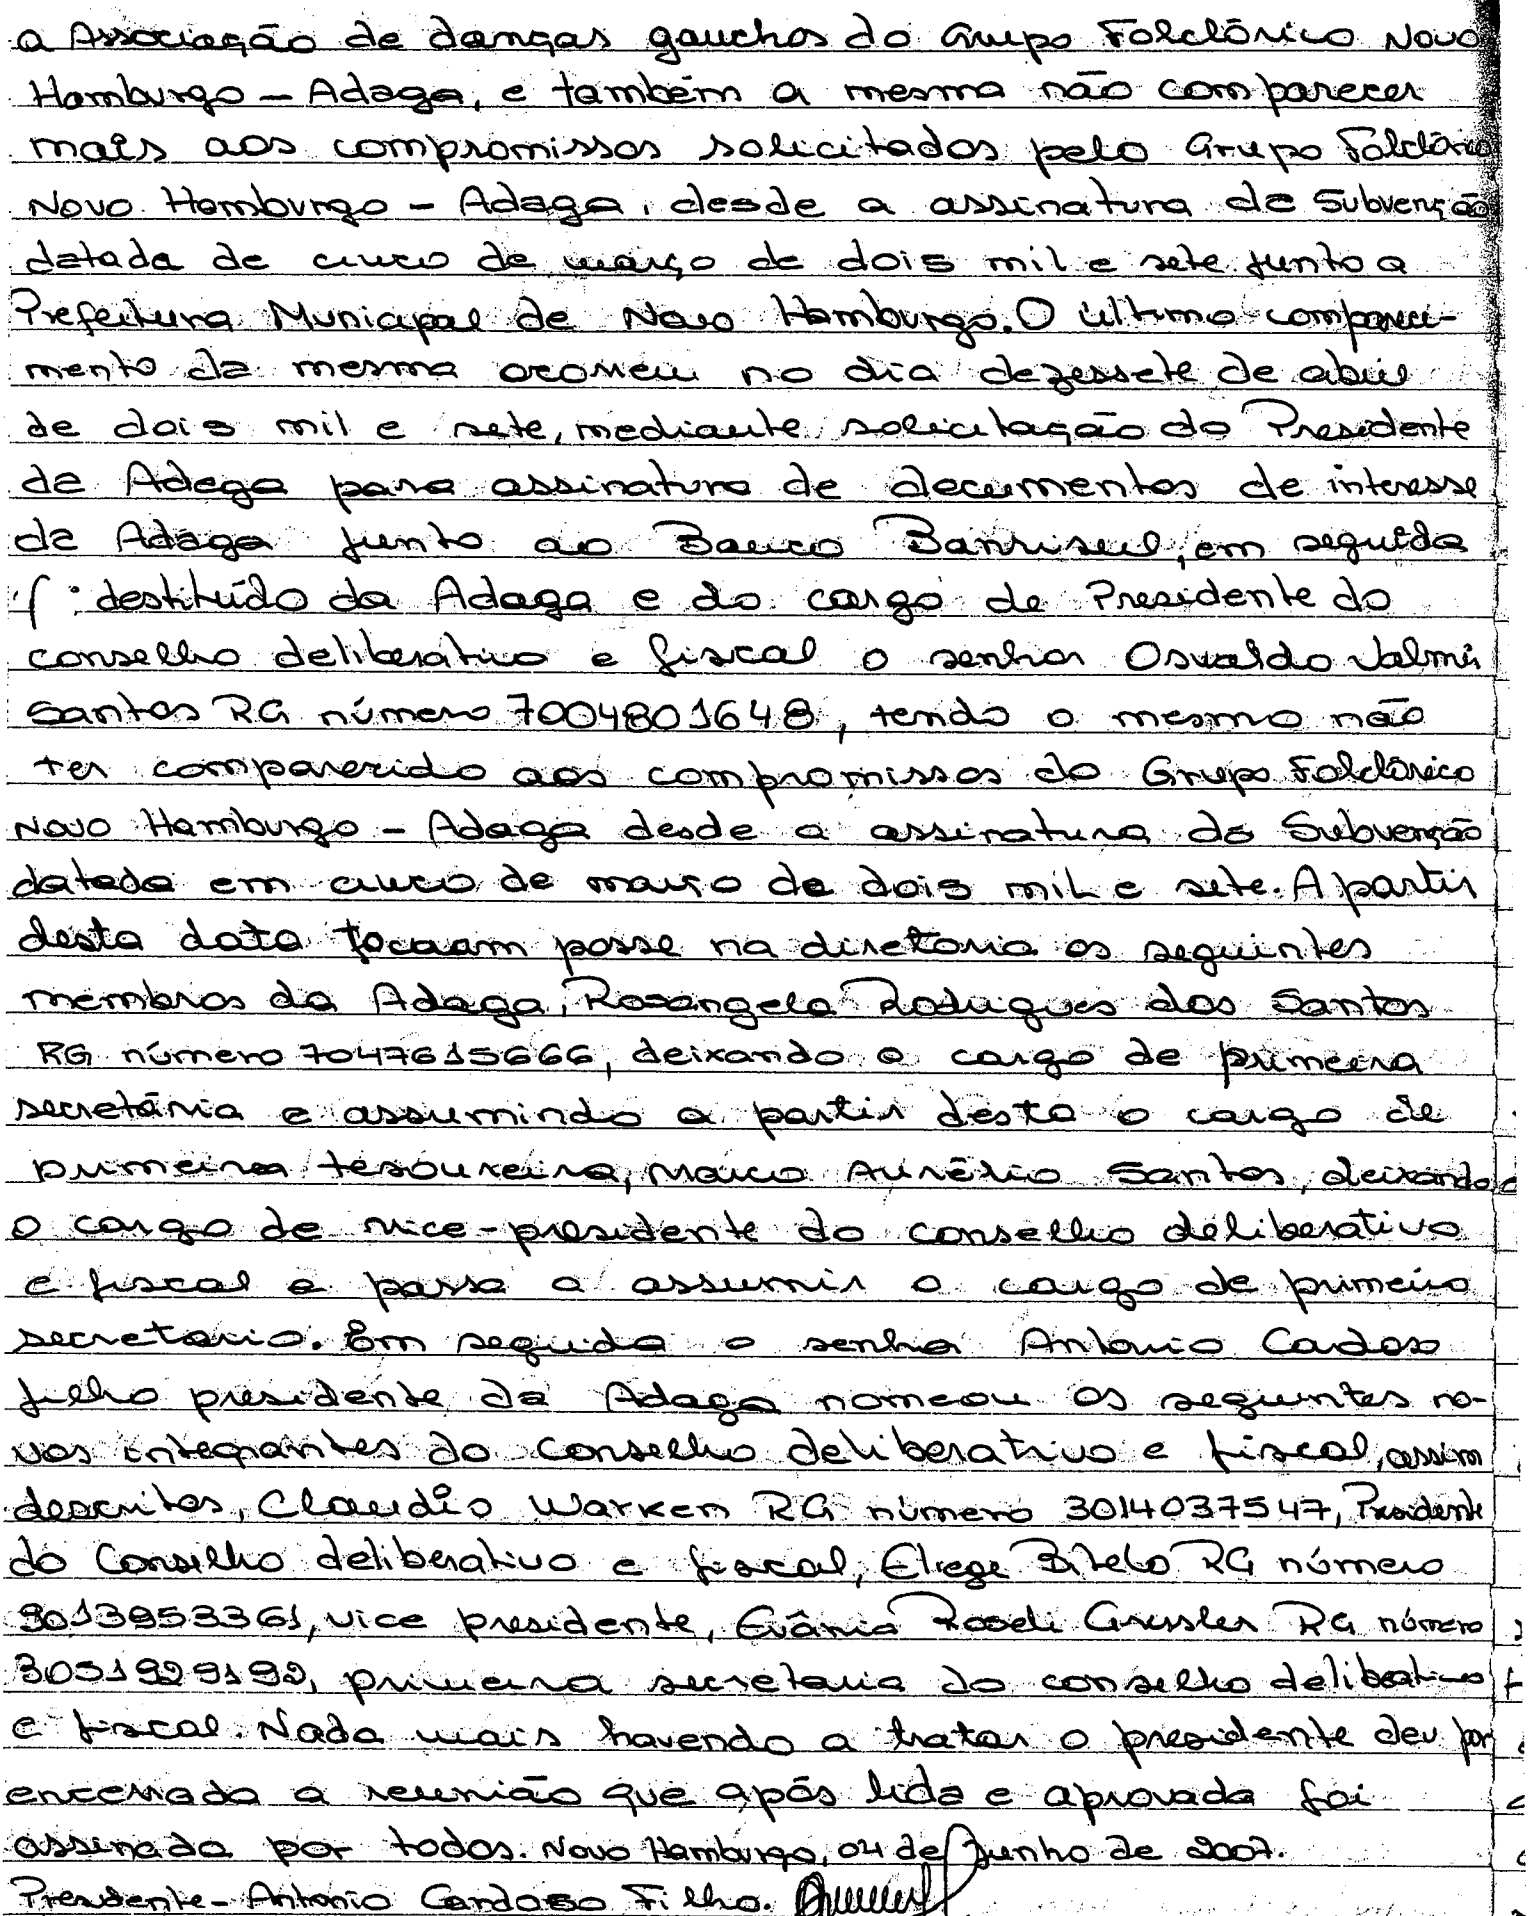 a Associação de danças gauchas do Grupo Folclórico Novo
Hamburgo - Adaga, e também a mesma não comparecer
mais aos compromissos solicitados pelo Grupo Folclórico
Novo Hamburgo - Adaga, desde a assinatura da Subvenção
datada de cinco de março de dois mil e sete junto a
Prefeitura Municipal de Novo Hamburgo. O último compareci-
mento da mesma ocorreu no dia dezessete de abril
de dois mil e sete, mediante solicitação do Presidente
da Adaga para assinatura de documentos de interesse
da Adaga junto ao Banco Banrisul, em seguida
destituído da Adaga e do cargo de Presidente do
conselho deliberativo e fiscal o senhor Osvaldo Valmir
Santos RG número 7004801648, tendo o mesmo não
ter comparecido aos compromissos do Grupo Folclórico
Novo Hamburgo - Adaga desde a assinatura da Subvenção
datada em cinco de março de dois mil e sete. A partir
desta data tocaam posse na diretoria os seguintes
membros da Adaga, Rosangela Rodrigues dos Santos
RG número 7047615666, deixando o cargo de primeira
secretária e assumindo a partir desta o cargo de
primeira tesoureira, Marco Aurélio Santos, deixando
o cargo de vice-presidente do conselho deliberativo
e fiscal e passa a assumir o cargo de primeiro
secretario. Em seguida o senhor Antonio Cardoso
filho presidente da Adaga nomeou os seguintes no-
vos integrantes do conselho deliberativo e fiscal, assim
descritos, Claudio Warken RG número 3014037547, Presidente
do Conselho deliberativo e fiscal, Eliege Bitelo RG número
9013953361, vice presidente, Evânia Roseli Gressler RG número
3051929192, primeira secretaria do conselho deliberativo
e fiscal. Nada mais havendo a tratar o presidente deu por
encerrada a reunião que após lida e aprovada foi
assinada por todos. Novo Hamburgo, 04 de Junho de 2007.
Presidente - Antonio Cardoso Filho.